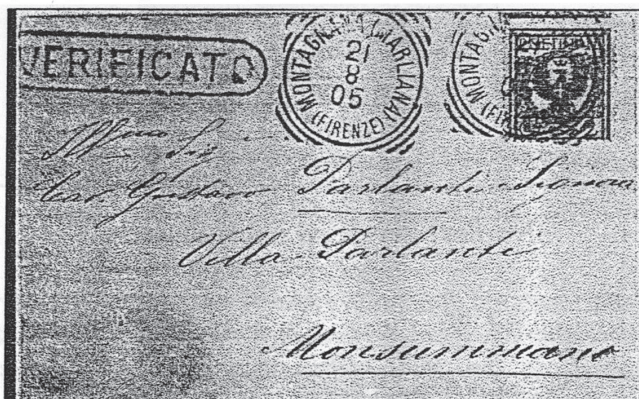 VERIFICATO
MONTAGNANA (MARLIANA)
21
8
05
(FIRENZE)
MONTAG
(FI
Sig
Cav. Gustavo Parlanti Signora
Villa Parlanti
Monsummano